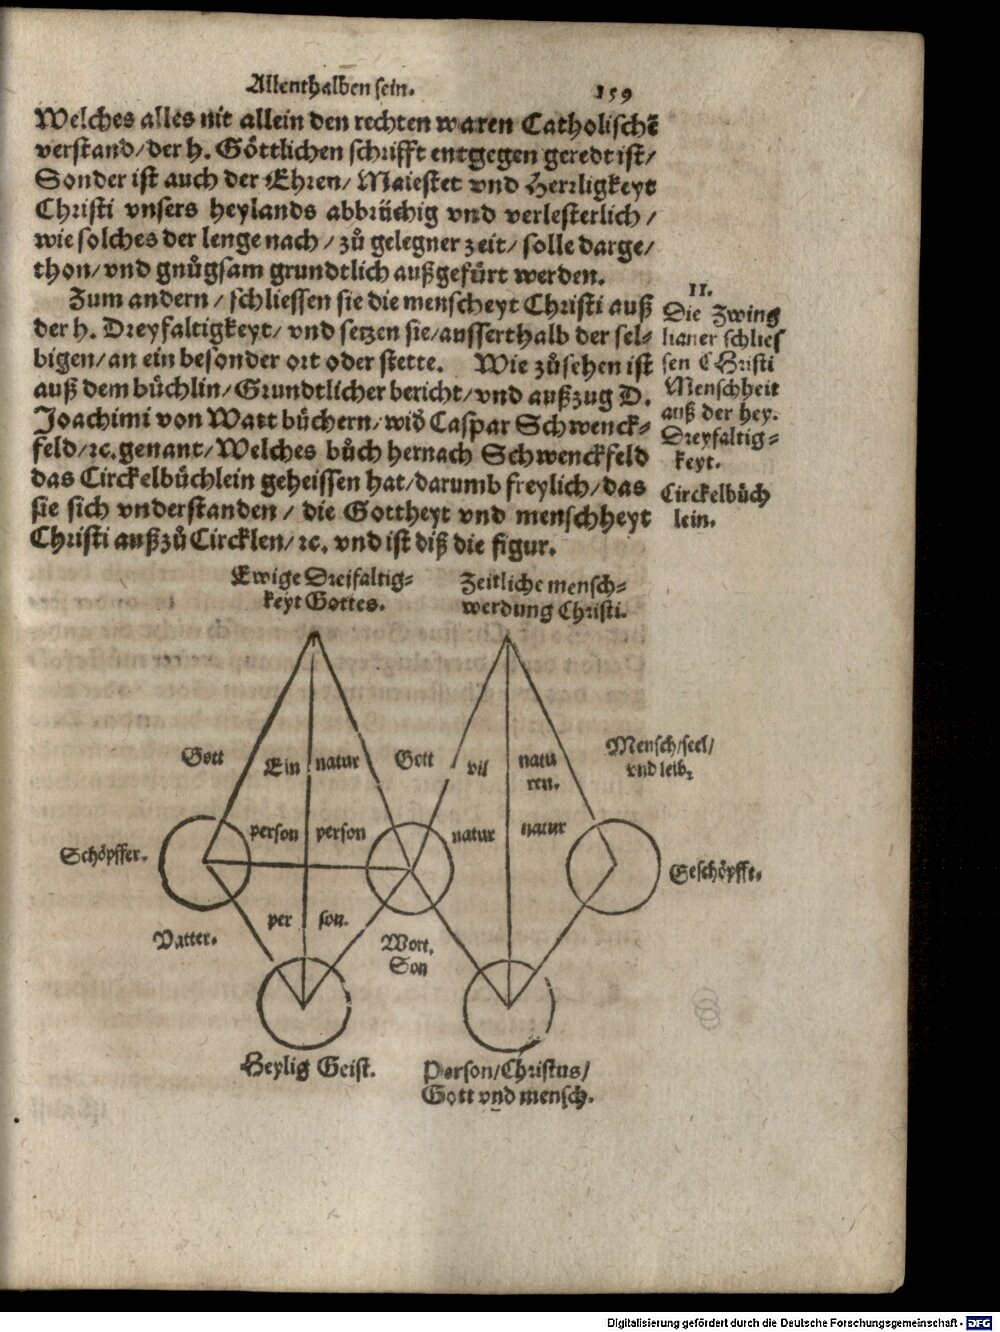 Allenthalben sein.
159
Welches alles nit allein den rechten waren Catholischē
verstand/der h. Göttlichen schrifft entgegen geredt ist/
Sonder ist auch der Ehren/ Maiestet vnd Herrligkeyt
Christi vnsers heylands abbrüchig vnd verlesterlich/
wie solches der lenge nach/ zů gelegner zeit/ solle darge/
thon/vnd gnůgsam grundtlich außgefürt werden.
Zum andern/ schliessen sie die menscheyt Christi auß
der h. Dreyfaltigkeyt/ vnd setzen sie/ausserthalb der sel⸗
bigen/an ein besonder ort oder stette. Wie zůsehen ist
auß dem büchlin/Grundtlicher bericht/vnd außzug D.
Joachimi von Watt büchern/wid̕ Caspar Schwenck⸗
feld/ꝛc.genant/Welches bůch hernach Schwenckfeld
das Circkelbüchlein geheissen hat/darumb freylich/das
sie sich vnderstanden/ die Gottheyt vnd menschheyt
Christi außzů Circklen/ꝛc. vnd ist diß die figur.
11.
Die Zwing
lianer schlies
sen Christi
Menschheit
auß der hey.
Dreyfaltig⸗
keyt.
Circkelbüch
lein.
Ewige Dreifaltig⸗
keyt Gottes.
Zeitliche mensch⸗
werdung Christi.
Gott
Ein natur
Gott
vil
natu
ren.
Mensch/seel/
vnd leib,
Schöpffer.
person person
natur
natur
Geschöpfft.
Vatter.
per son.
Wort,
Son
Heylig Geist.
Person/Christus/
Gott vnd mensch.
Digitalisierung gefördert durch die Deutsche Forschungsgemeinschaft - DFG